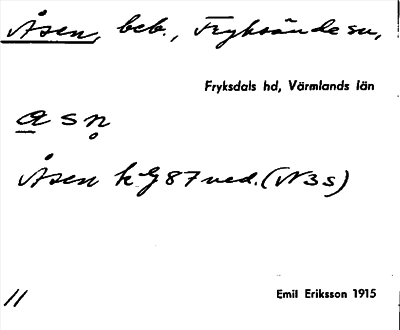 Åsen, beb., Fryksände sn,
Fryksdals hd, Värmlands län
a s n̥
Åsen k G 87 ned. (N3s)
11
Emil Eriksson 1915